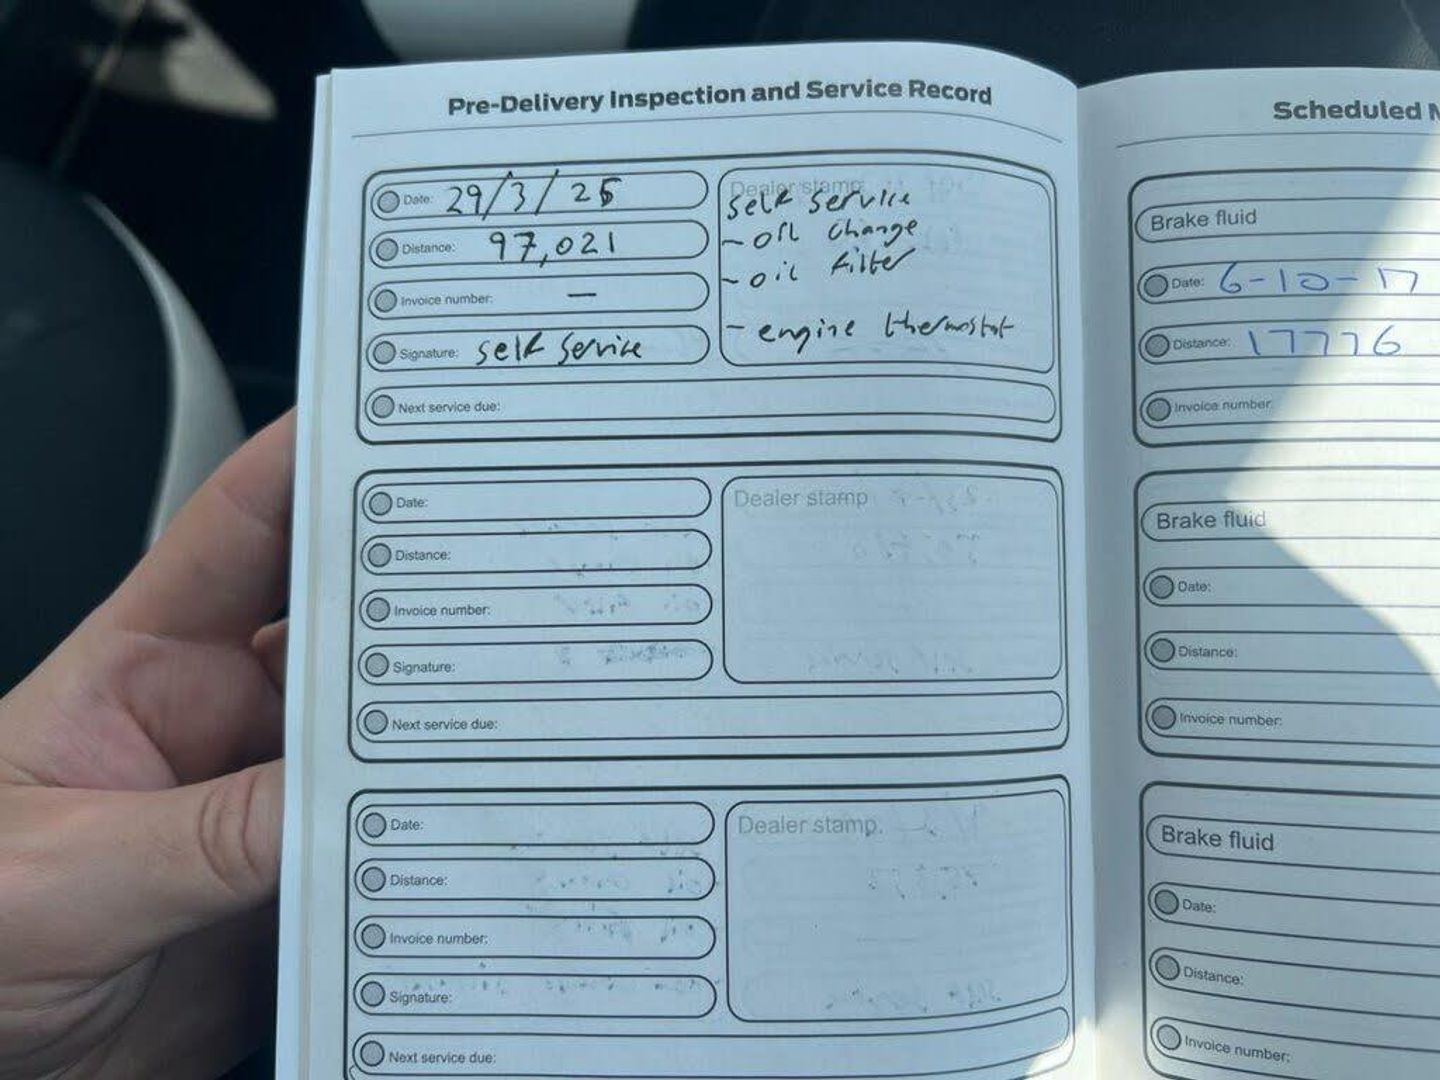 Pre-Delivery Inspection and Service Record
Date: 29/3/25
Distance: 97,021
Invoice number: —
Signature: self service
Next service due:
Dealer stamp
self service
- oil change
- oil filter
- engine thermostat
Date:
Distance:
Invoice number:
Signature:
Next service due:
Dealer stamp
Date:
Distance:
Invoice number:
Signature:
Next service due:
Dealer stamp.
Scheduled
Brake fluid
Date: 6-10-17
Distance: 17776
Invoice number:
Brake fluid
Date:
Distance:
Invoice number:
Brake fluid
Date:
Distance:
Invoice number: